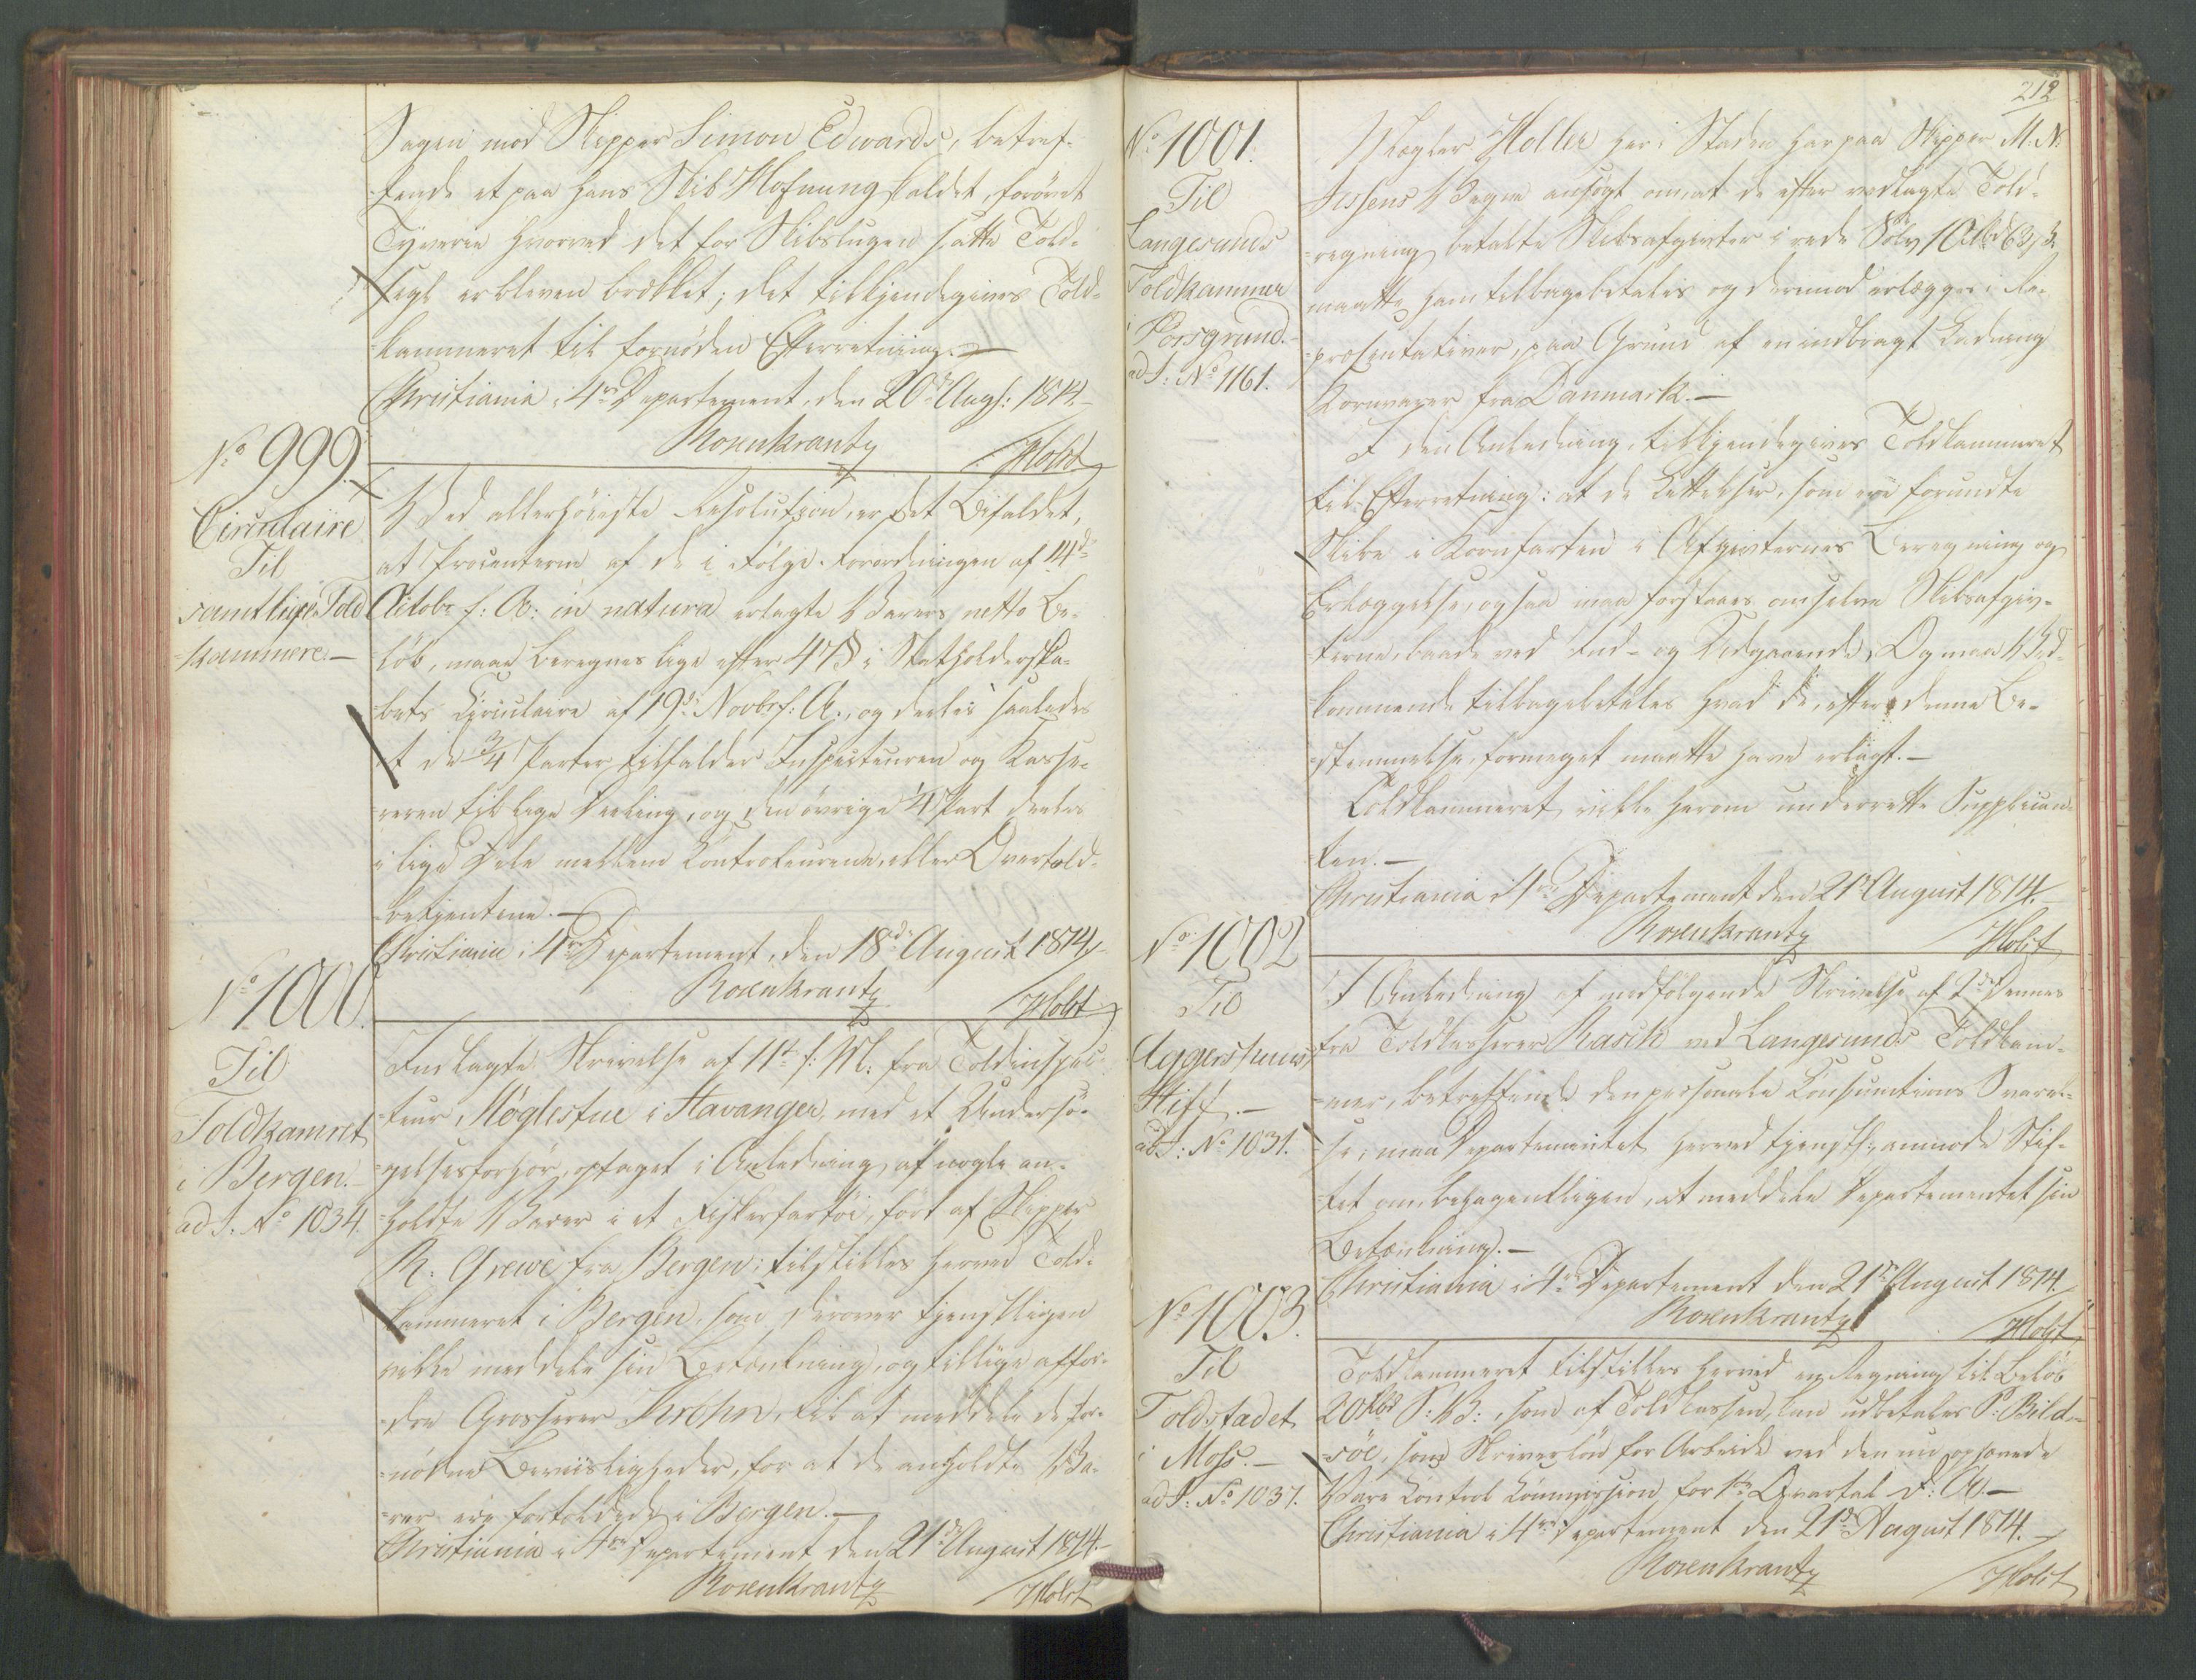 Sagen mod Skipper Simon Edwards, betref-
-fende et paa hans Skib Hofnung kaldet, forøvet
Tyverie hvorved det for Skibslugen satte Told-
segl er bleven brækket; det tilkjendegives Told-
-kammeret til fornøden Efterretning. —
Christiania i 4de Departement, den 20de Augs: 1814. —
Rosenkrantz
Holst
No 999.
Circulaire
Til
samtlige Told
-kammere. —
Ved allerhöieste Resolution, er det bifaldet,
at Procenterne af de i Følge Forordningen af 14de
Octobr f: A: in natura erlagte Varers netto Be-
-løb, maae beregnes lige efter 47 § i Statholderska-
-bets Circulaire af 19de Novbr f: A., og deeles saaledes
at de 3/4 Parter tilfalder Inspecteuren og Kasse-
-reren til lige Deeling, og den øvrige 1/4 Part deeles
i lige Dele mellem Controleurerne, eller Overtold-
-betjentene. —
Christiania i 4de Departement, den 18de August 1814. —
Rosenkrantz
Holst
No 1000.
Til
Toldkamret
i Bergen. —
ad J. No 1034.
Indlagte Skrivelse af 11te f: M: fra Toldinspec-
-teur Møglestue i Stavanger, med et Undersø-
-gelsesforhør, optaget i Anledning af nogle an-
-holdte Varer i et Fiskerfartøi, ført af Skipper
R. Grewe fra Bergen; tilstilles herved Told-
-kammeret i Bergen, som derover tjenstligen
vilde meddele sin Betænkning, og tillige affor-
-dre Grosserer Krohn, til at meddele de for-
-nødne Beviisligheder, for at de anholdte Va-
-rer ere fortoldede i Bergen. —
Christiania i 4de Departement den 21de August 1814. —
Rosenkrantz
Holst
212
No 1001.
Til
Langesunds
Toldkammer
i Porsgrund. —
ad J: No 1161.
Mægler Møller her i Staden har paa Skipper M. N.
Jessens Vegne ansøgt om, at de efter vedlagte Told-
-regning betalte Skibsafgivter i rede Sølv
maatte ham tilbagebetales og derimod erlægges i Re-
-præsentativer, paa Grund af en indbragt Ladning
Kornvarer fra Danmark. —
I den Anledning, tilkjendegives Toldkammeret
til Efterretning: at de Lettelser, som ere forundte
Skibe i Kornfarten i Afgivternes Beregning og
Erlæggelse, ogsaa maa forstaaes om selve Skibsafgiv-
-terne, baade ved Ind- og Udgaaende, Og maa Ved-
-kommende tilbagebetales hvad de, efter denne Be-
-stemmelse, formeget maatte have erlagt. —
Toldkammeret vilde herom underrette Supplican-
-ten. —
Christiania i 4de Departement den 21de August 1814. —
Rosenkrantz
Holst
No 1002
Til
Aggershuus
Stift. —
ad J: No 1031.
I Anledning af medfølgende Skrivelse af 2den Dennes
fra Toldkasserer Rasch ved Langesunds Toldkam-
-mer, betreffende den personale Consumtions Svarel-
-se, maa Departementet herved tjenstl: anmode Stif-
-tet om behageligen, at meddele Departementet sin
Betænkning. —
Christiania i 4de Departement den 21de August 1814.
Rosenkrantz
Holst
No 1003.
Til
Toldstadet
i Moss. —
ad J: No 1037.
Toldkammeret tilstilles herved en Regning til Beløb
20 Rbd S: V:, som af Toldkassen kan udbetales P: Bild-
-søe, som Skriverløn for Arbeide ved den nu ophævede
Vare Control Commission for 1ste Qvartal d: A. —
Christiania i 4de Departement den 21de August 1814. —
Rosenkrantz
Holst